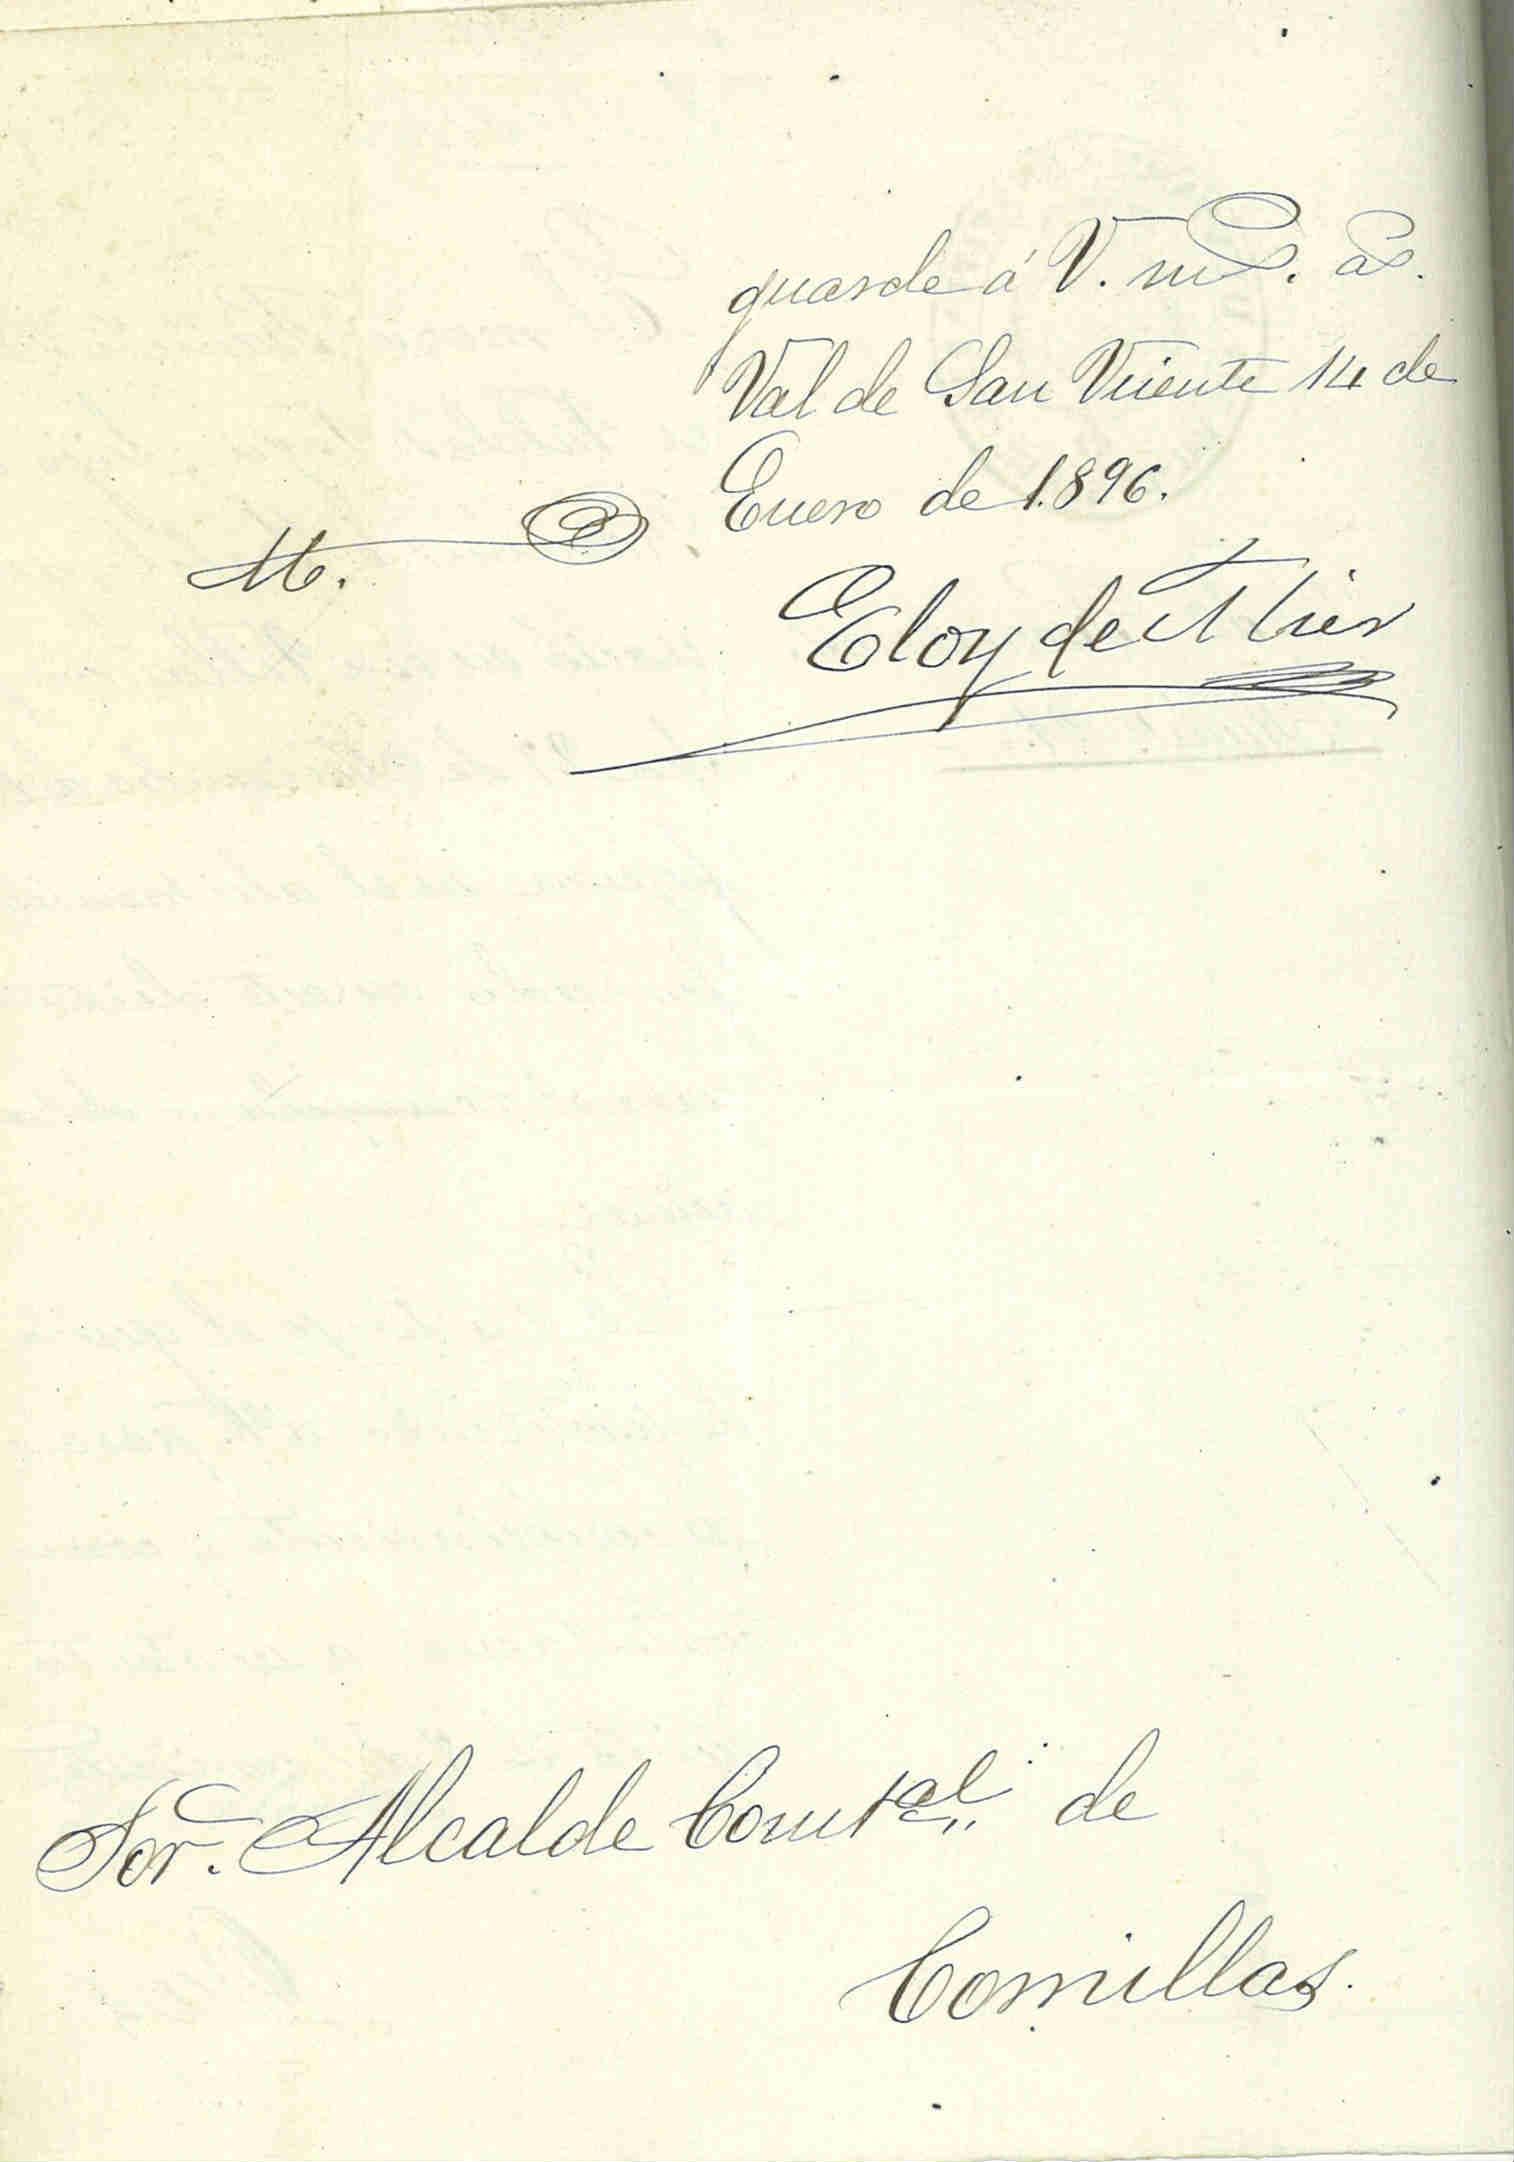 guarde á V. ms. as.
Val de San Vicente 14 de
Enero de 1.896.
M.
Eloy de Mier
Sor. Alcalde Constal. de
Comillas.